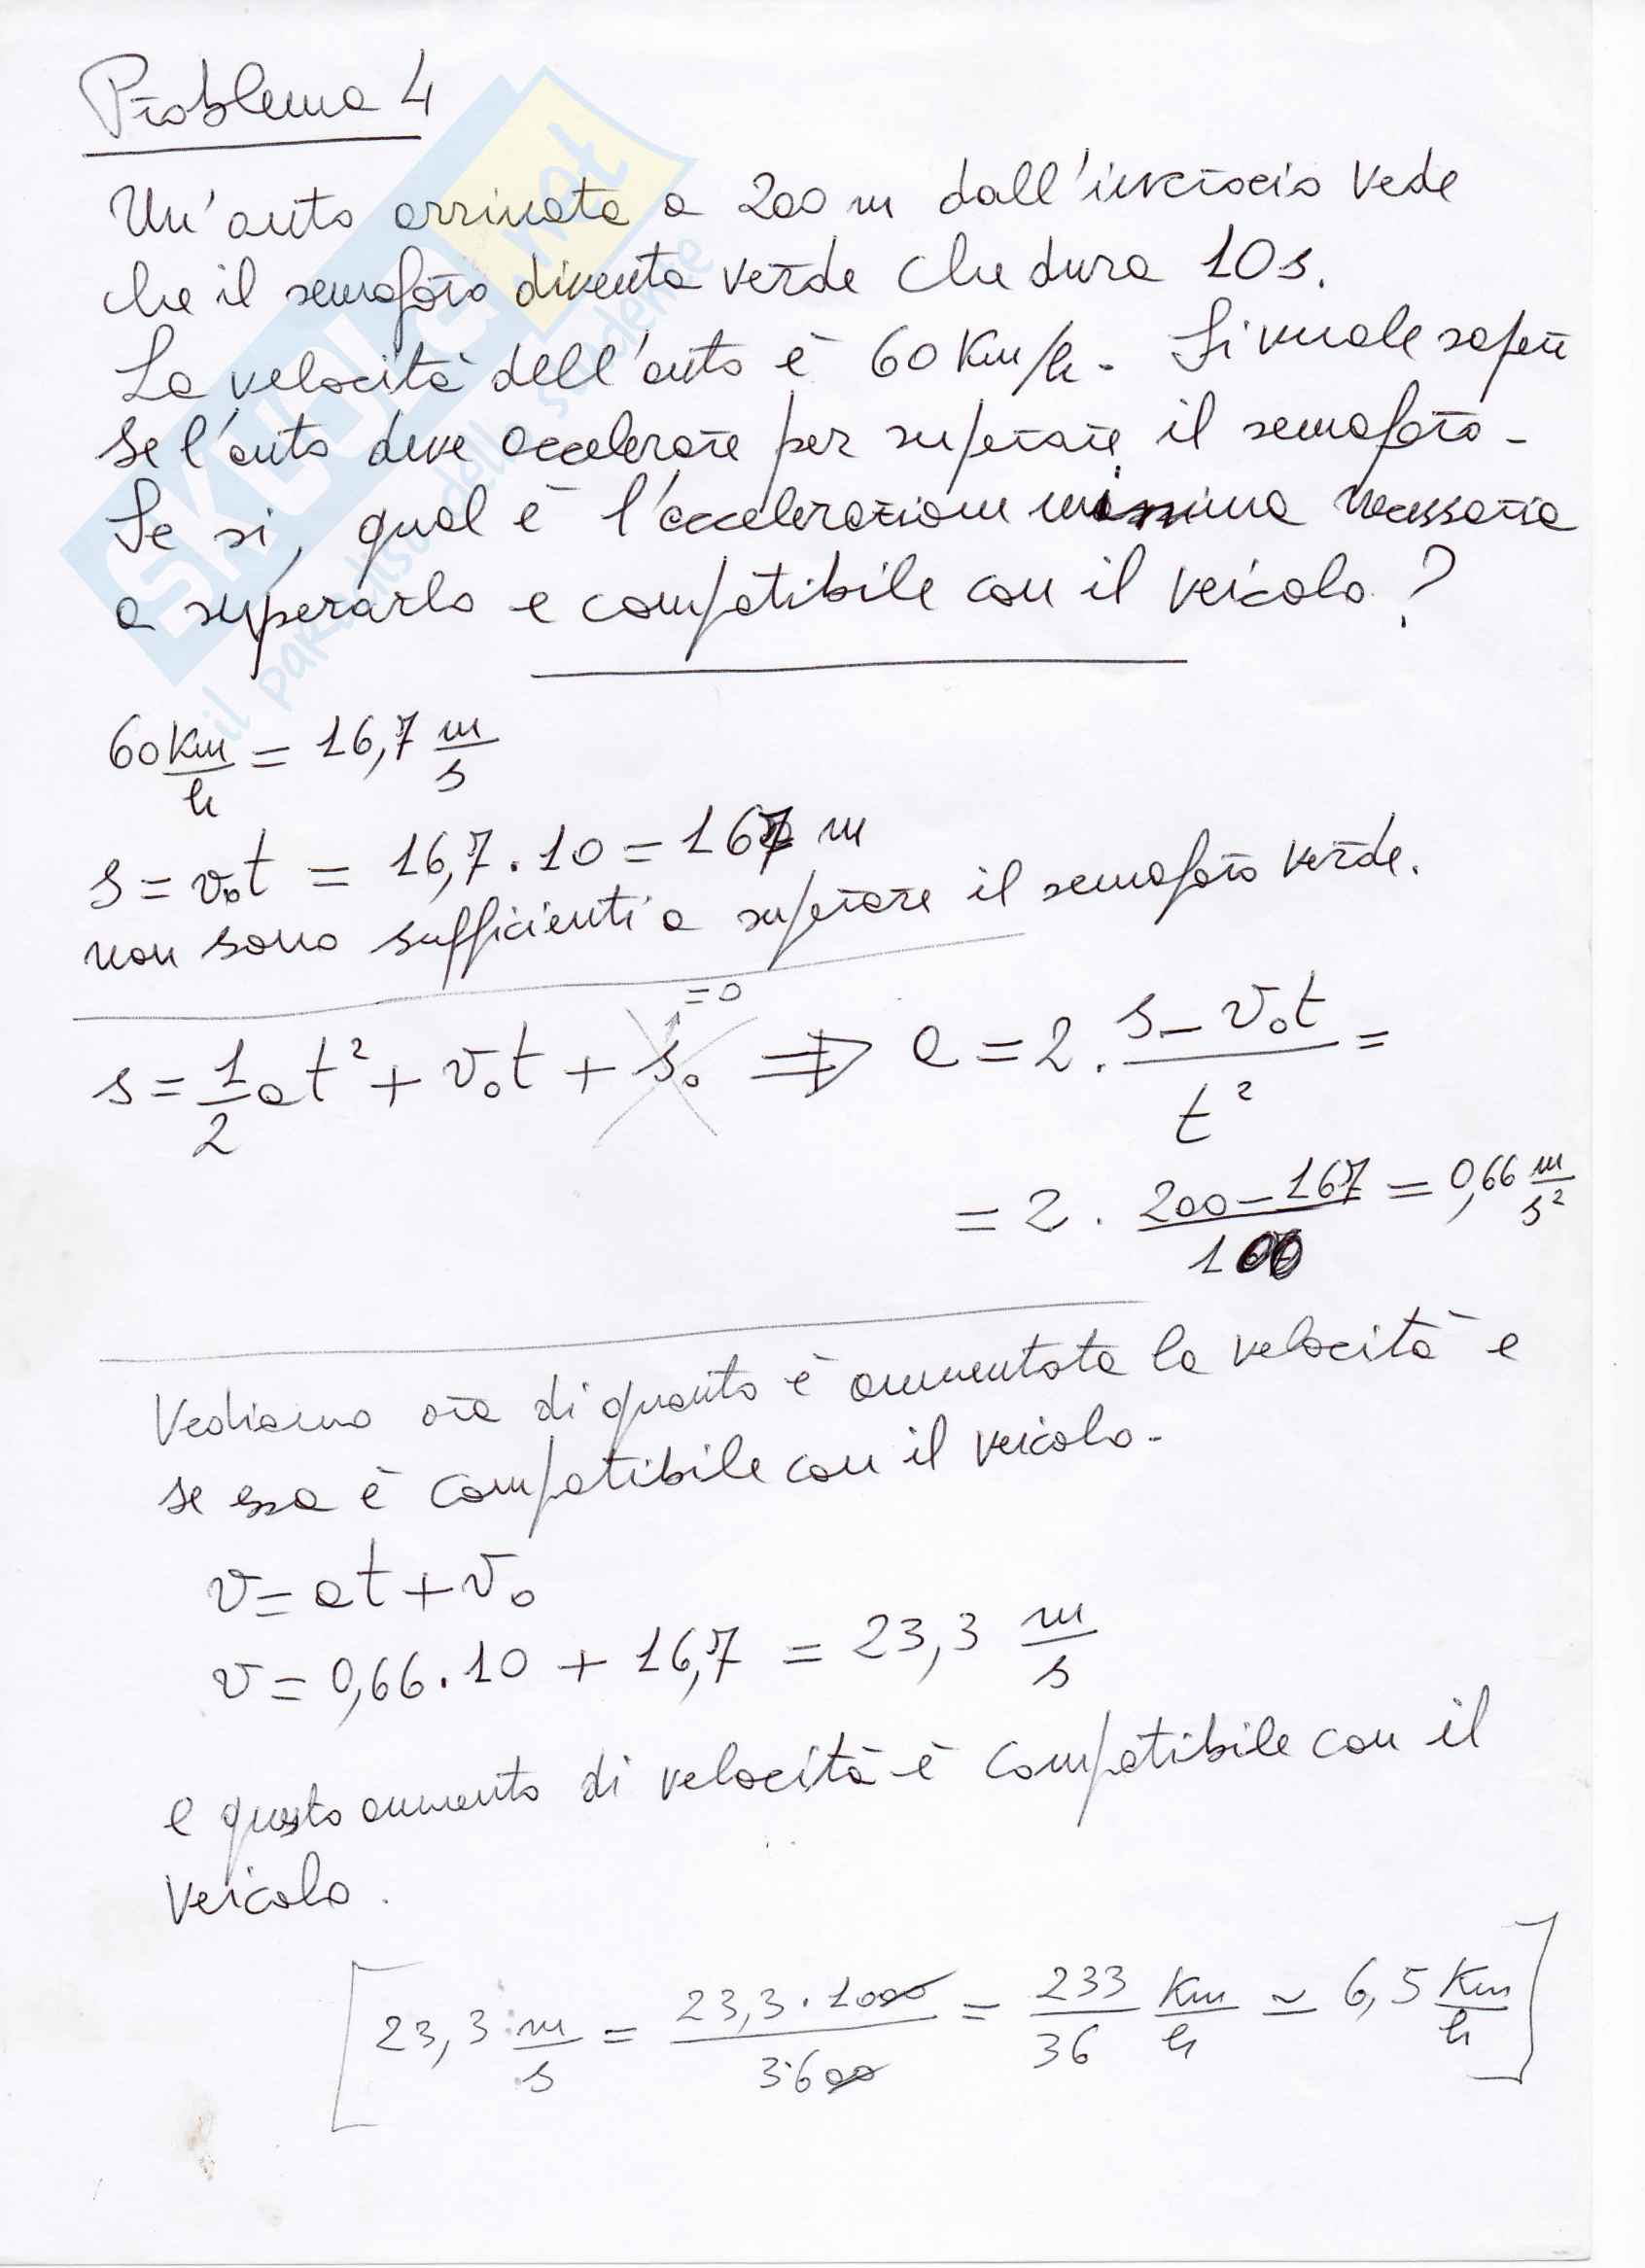 Problema 4
Un'auto arrivata a 200 m dall'incrocio vede
che il semaforo diventa verde che dura 10 s.
La velocità dell'auto è 60 Km/h. Si vuole sapere
se l'auto deve accelerare per superare il semaforo.
Se sì, qual è l'accelerazione minima necessaria
a superarlo e compatibile con il veicolo?
60 Km/h = 16,7 m/s
s = v₀t = 16,7 · 10 = 167 m
non sono sufficienti a superare il semaforo verde.
= 0
s = 1/2 at² + v₀t + s₀ ⇒ a = 2 · (s - v₀t)/t² =
= 2 · (200 - 167)/100 = 0,66 m/s²
Vediamo ora di quanto è aumentata la velocità e
se essa è compatibile con il veicolo.
v = at + v₀
v = 0,66 · 10 + 16,7 = 23,3 m/s
e questo aumento di velocità è compatibile con il
veicolo.
[23,3 m/s = 23,3 · 1000/3600 = 233/36 Km/h ≃ 6,5 Km/h]
SKUOLA.net
il paradiso dello studente